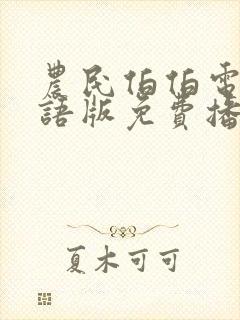 農民伯伯電
語版免費播
夏木可可